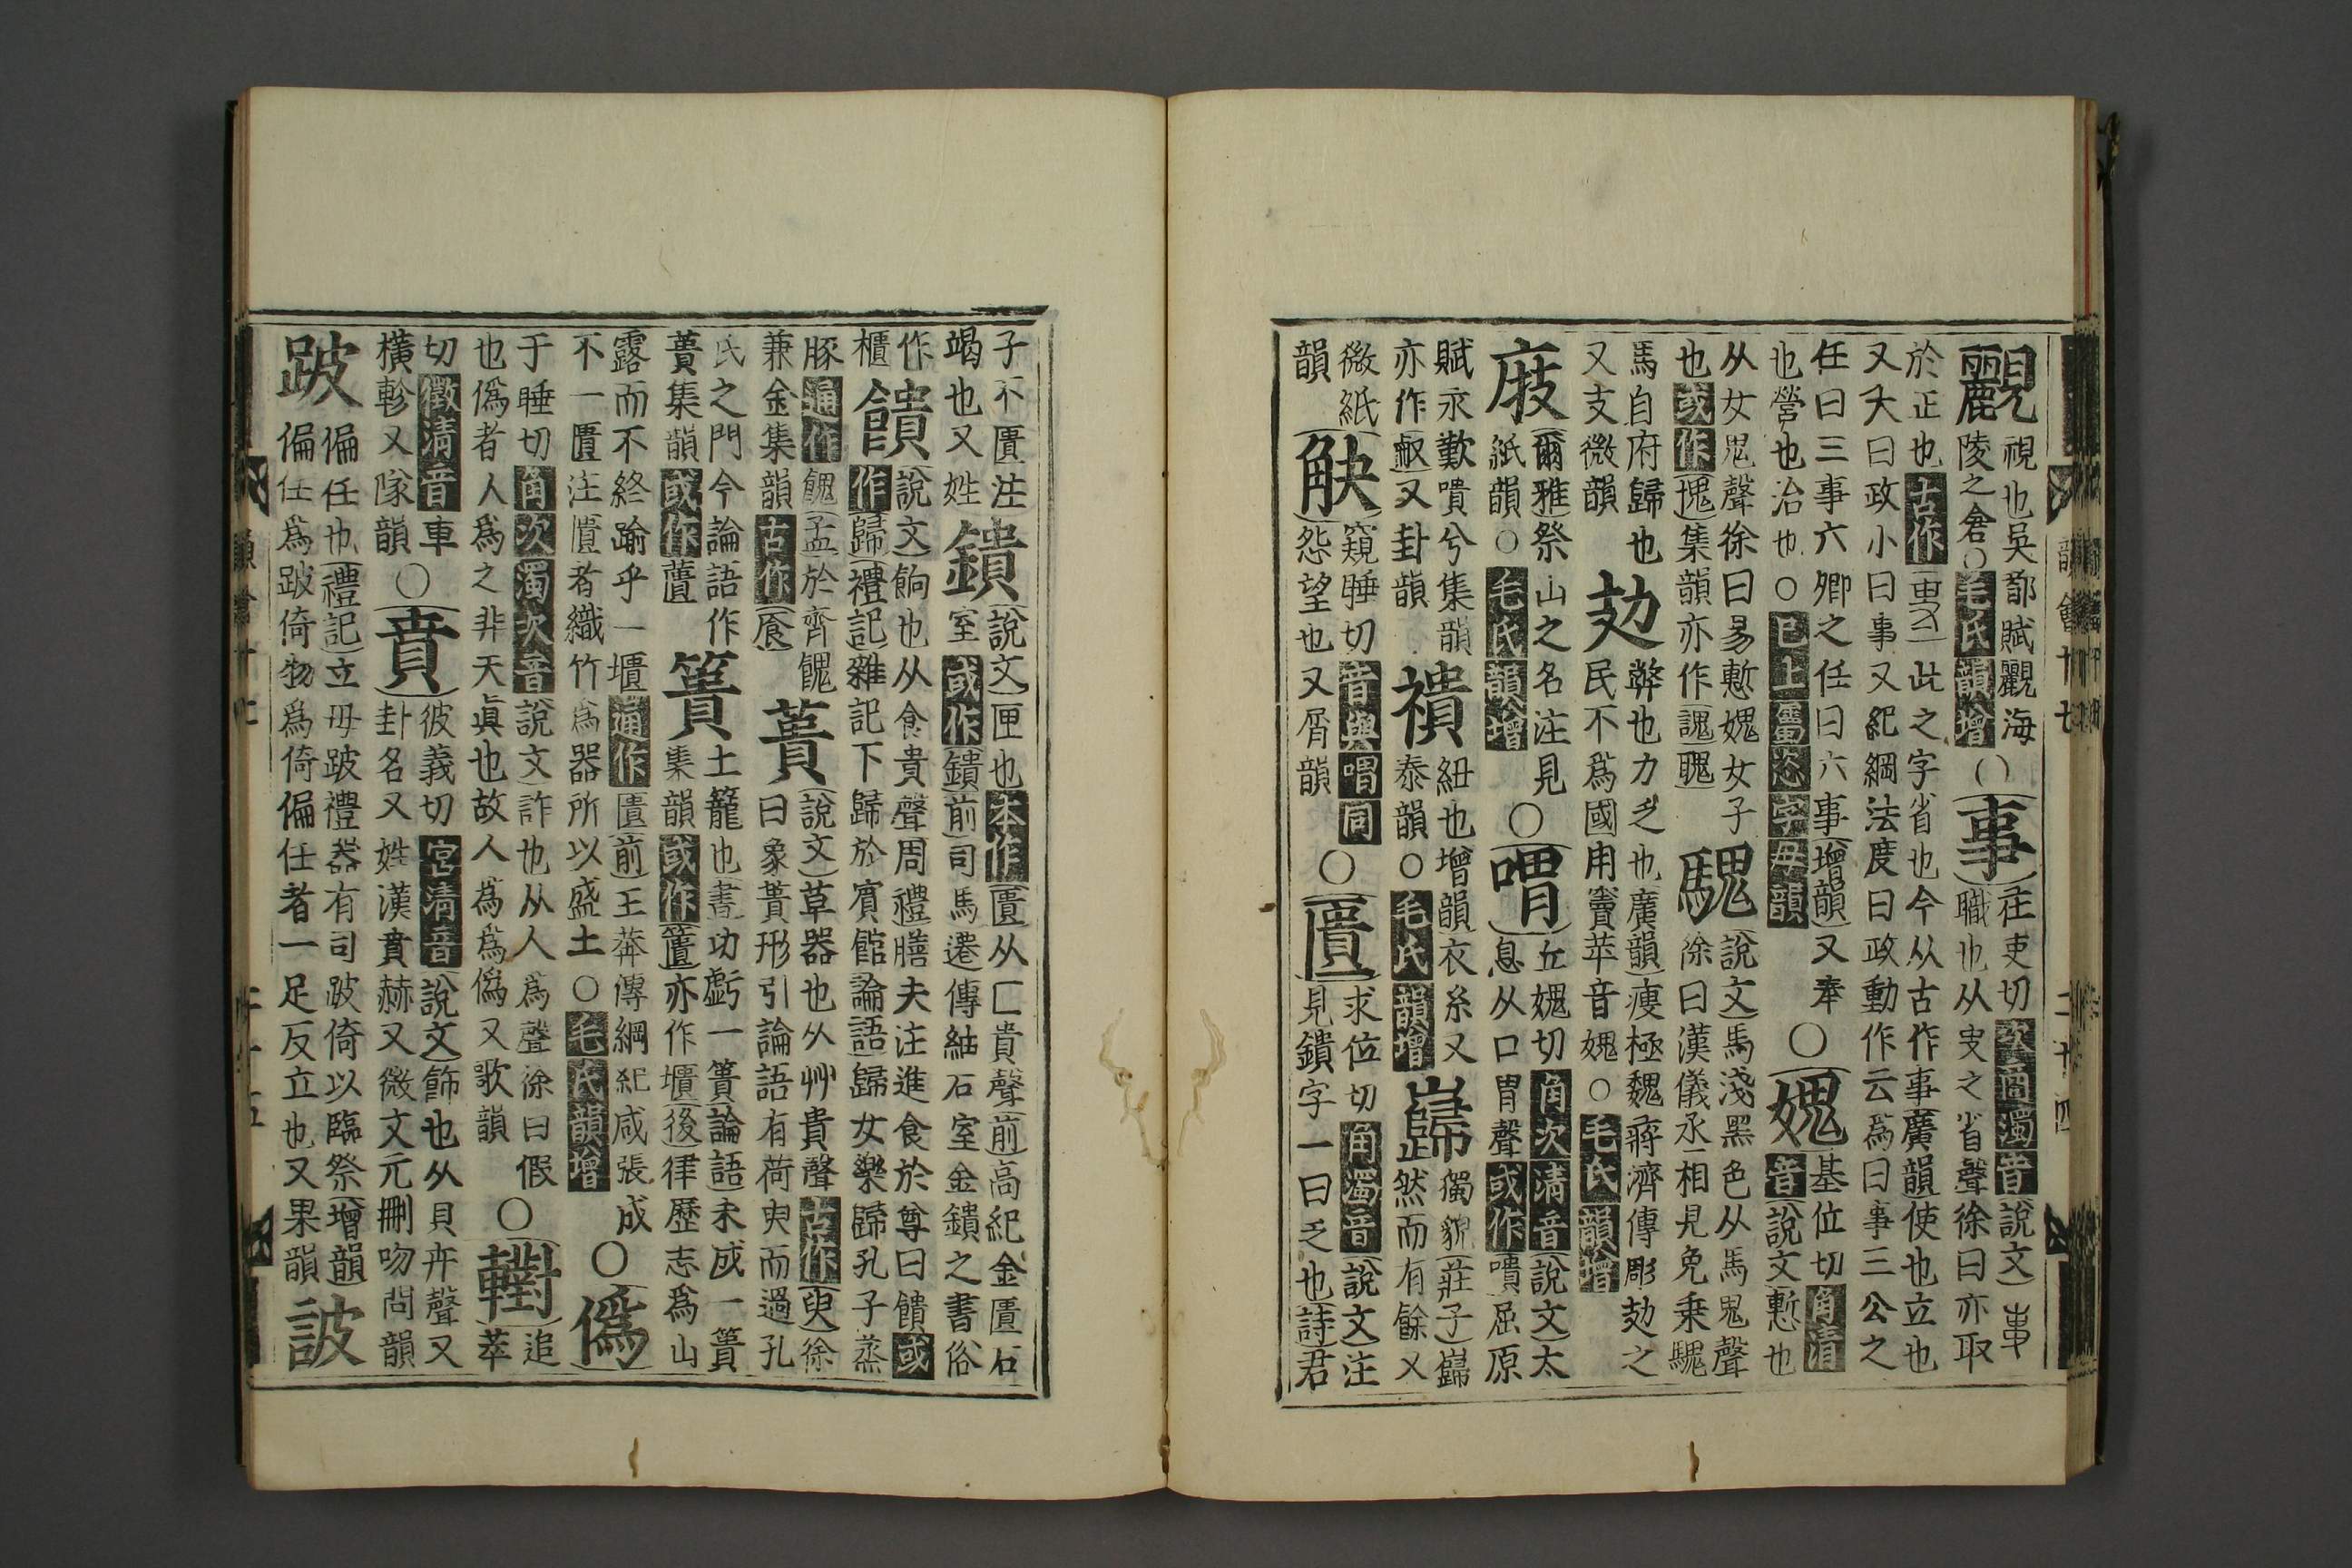 覼
視也吳都賦覼海
陵之倉○毛氏韻增
○
事
仕吏切次商濁音說文
職也从史之省聲徐曰亦取
於正也古作此之字省也今从古作事廣韻使也立也
又大曰政小曰事又紀綱法度曰政動作云爲曰事三公之
任曰三事六卿之任曰六事增韻又奉
也營也治也○已上屬恣字母韻
○
媿
基位切角清
音說文慙也
从女鬼聲徐曰易慙媿女子
也或作愧集韻亦作謉聭
騩
說文馬淺黑色从馬鬼聲
徐曰漢儀丞相見免乗騩
馬自府歸也
又支微韻
攰
弊也力乏也廣韻瘦極魏蔣濟傳彫攰之
民不爲國用竇苹音媿○毛氏韻增
庪
爾雅祭山之名注見
紙韻○毛氏韻增
○
喟
丘媿切角次清音說文太
息从口胃聲或作嘳屈原
賦永歎嘳兮集韻
亦作㕟又卦韻
襀
紐也增韻衣糸又
泰韻○毛氏韻增
巋
獨貌莊子巋
然而有餘又
微紙
韻
觖
窺睡切音與喟同
怨望也又屑韻
○
匱
求位切角濁音說文注
見鐀字一曰乏也詩君
子不匱注
竭也又姓
鐀
說文匣也本作匱从匚貴聲前高紀金匱石
室或作鑎前司馬遷傳紬石室金鐀之書俗
作
櫃
饋
說文餉也从食貴聲周禮膳夫注進食於尊曰饋或
作歸禮記雜記下歸於賓館論語歸女樂歸孔子蒸
豚通作餽孟於齊餽
兼金集韻古作
蕢
說文草器也从艸貴聲古作臾徐
曰象蕢形引論語有荷臾而過孔
氏之門今論語作
蕢集韻或作
簣
土籠也書功虧一簣論語未成一簣
集韻或作簣亦作櫃後律歷志爲山
露而不終踰乎一櫃通作匱前王莽傳綱紀咸張成
不一匱注匱者織竹爲器所以盛土○毛氏韻增
○
僞
于睡切角次濁次音說文詐也从人爲聲徐曰假
也僞者人爲之非天眞也故人爲爲僞又歌韻
○
轛
追
萃
切徵清音車
橫軫又隊韻
○
賁
彼義切宮清音說文飾也从貝卉聲又
卦名又姓漢賁赫又微文元刪吻問韻
跛
偏任也禮記立毋跛禮器有司跛倚以臨祭增韻
偏任爲跛倚物爲倚偏任者一足反立也又果韻
詖